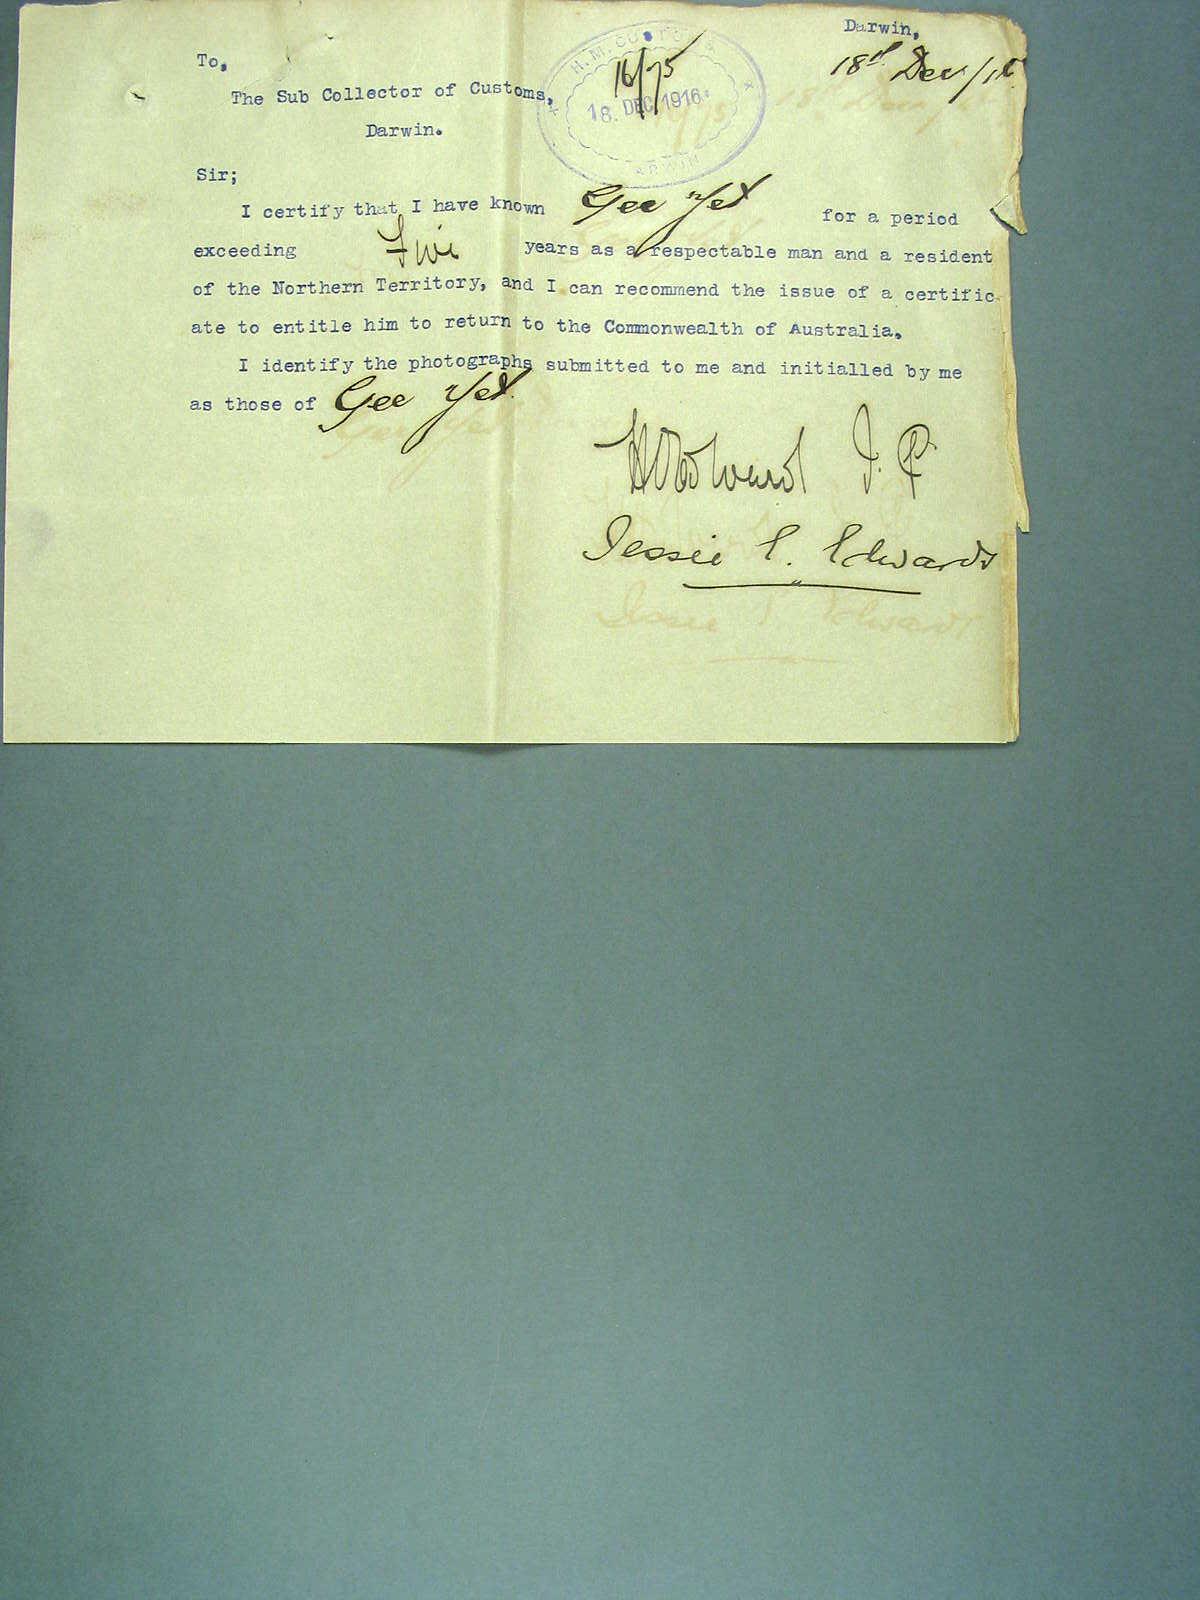 Darwin,
18th Dec/16
To,
The Sub Collector of Customs,
Darwin.
H.M. CUSTOMS
16/75
18. DEC. 1916.
DARWIN
Sir;
I certify that I have known Gee Yet for a period
exceeding Five years as a respectable man and a resident
of the Northern Territory, and I can recommend the issue of a certific-
ate to entitle him to return to the Commonwealth of Australia.
I identify the photographs submitted to me and initialled by me
as those of Gee Yet.
J.P.
Jessie C. Edwards